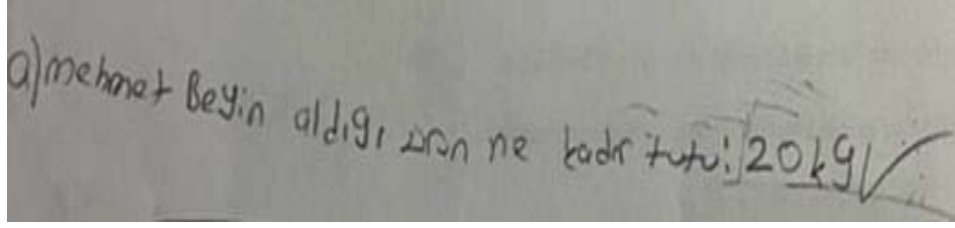 a) mehmet Beyin aldıgı ürün ne kadr tutu: 20kg